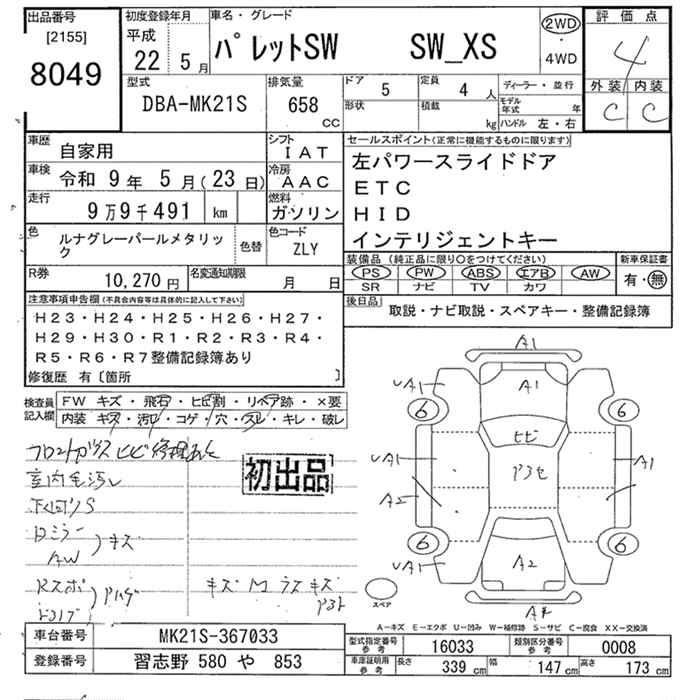 出品番号
[2155]
8049
初度登録年月
平成
22 5月
車名・グレード
パレットSW SW_XS
2WD
4WD
評価点
4
外装 内装
C C
型式
DBA-MK21S
排気量
658 CC
ドア 5
形状
定員 4 人
積載 kg
ディーラー・並行
モデル年式 年
ハンドル 左・右
車歴 自家用
シフト IAT
車検 令和 9年 5月(23日)
冷房 AAC
走行 9万9千491 km
燃料 ガソリン
色 ルナグレーパールメタリック
色替
色コード ZLY
R券 10,270円
名変通知期限 月 日
セールスポイント(正常に機能するものに限ります)
左パワースライドドア
ETC
HID
インテリジェントキー
装備品(純正品に限り○をつけてください)
PS PW ABS エアB AW
SR ナビ TV カワ
新車保証書
有・無
後日品 取説・ナビ取説・スペアキー・整備記録簿
注意事項申告欄(不具合内容等は具体的に記入して下さい)
H23・H24・H25・H26・H27・
H29・H30・R1・R2・R3・R4・
R5・R6・R7整備記録簿あり
修復歴 有〔箇所 〕
検査員記入欄
FW キズ・飛石・ヒビ割・リペア跡・×要
内装 キズ・汚れ・コゲ・穴・スレ・キレ・破レ
フロントガラスヒビ修理
室内毛汚レ
下回りS
Dミラー
AW
キズ
Rスポ
ドアノブ
Pハゲ
キズ M ラスキズ
初出品
A1
A1
UA1
UA1
6
6
ヒビ
UA1
A1
P3セ
A2
6
6
A2
UA1
UA1
スペア
A
A-キズ E-エクボ U-凹み W-補修跡 S-サビ C-腐食 XX-交換済
車台番号 MK21S-367033
登録番号 習志野 580 や 853
型式指定番号 参考 16033
類別区分番号 参考 0008
車庫証明用 参考
長さ 339cm
幅 147cm
高さ 173cm